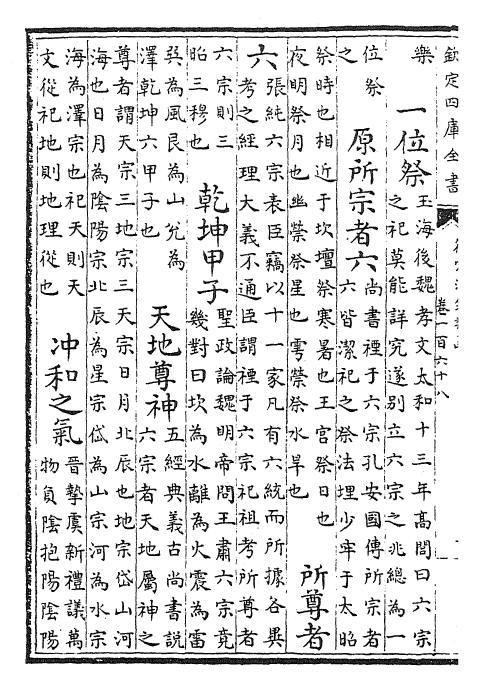 欽定四庫全書
卷一百六十八
樂
一位祭
玉海後魏孝文太和十三年高閭曰六宗
之祀莫能詳究遂別立六宗之兆總為一
位祭
之
原所宗者六
尚書禋于六宗孔安國傳所宗者
六皆潔祀之祭法埋少牢于太昭
祭時也相近于坎壇祭寒暑也王宮祭日也
夜明祭月也幽禜祭星也雩禜祭水旱也
所尊者
六
張純六宗表臣竊以十一家凡有六統而所據各異
考之經理大義不通臣謂禋于六宗祀祖考所尊者
六宗則三
昭三穆也
乾坤甲子
聖政論魏明帝問王肅六宗竟
幾對曰坎為水離為火震為雷
巽為風艮為山兌為
澤乾坤六甲子也
天地尊神
五經典義古尚書說
六宗者天地屬神之
尊者謂天宗三地宗三天宗日月北辰也地宗岱山河
海也日月為陰陽宗北辰為星宗岱為山宗河為水宗
海為澤宗也祀天則天
文從祀地則地理從也
冲和之氣
晉摯虞新禮議萬
物負陰抱陽陰陽